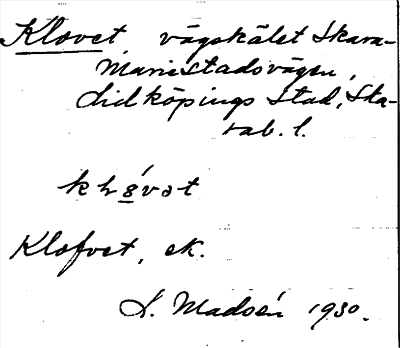 Klovet, vägskälet Skara-
Mariestadsvägen,
Lidköpings Stad, Ska-
rab. l.
Klofvet, ek.
Madsén 1930.